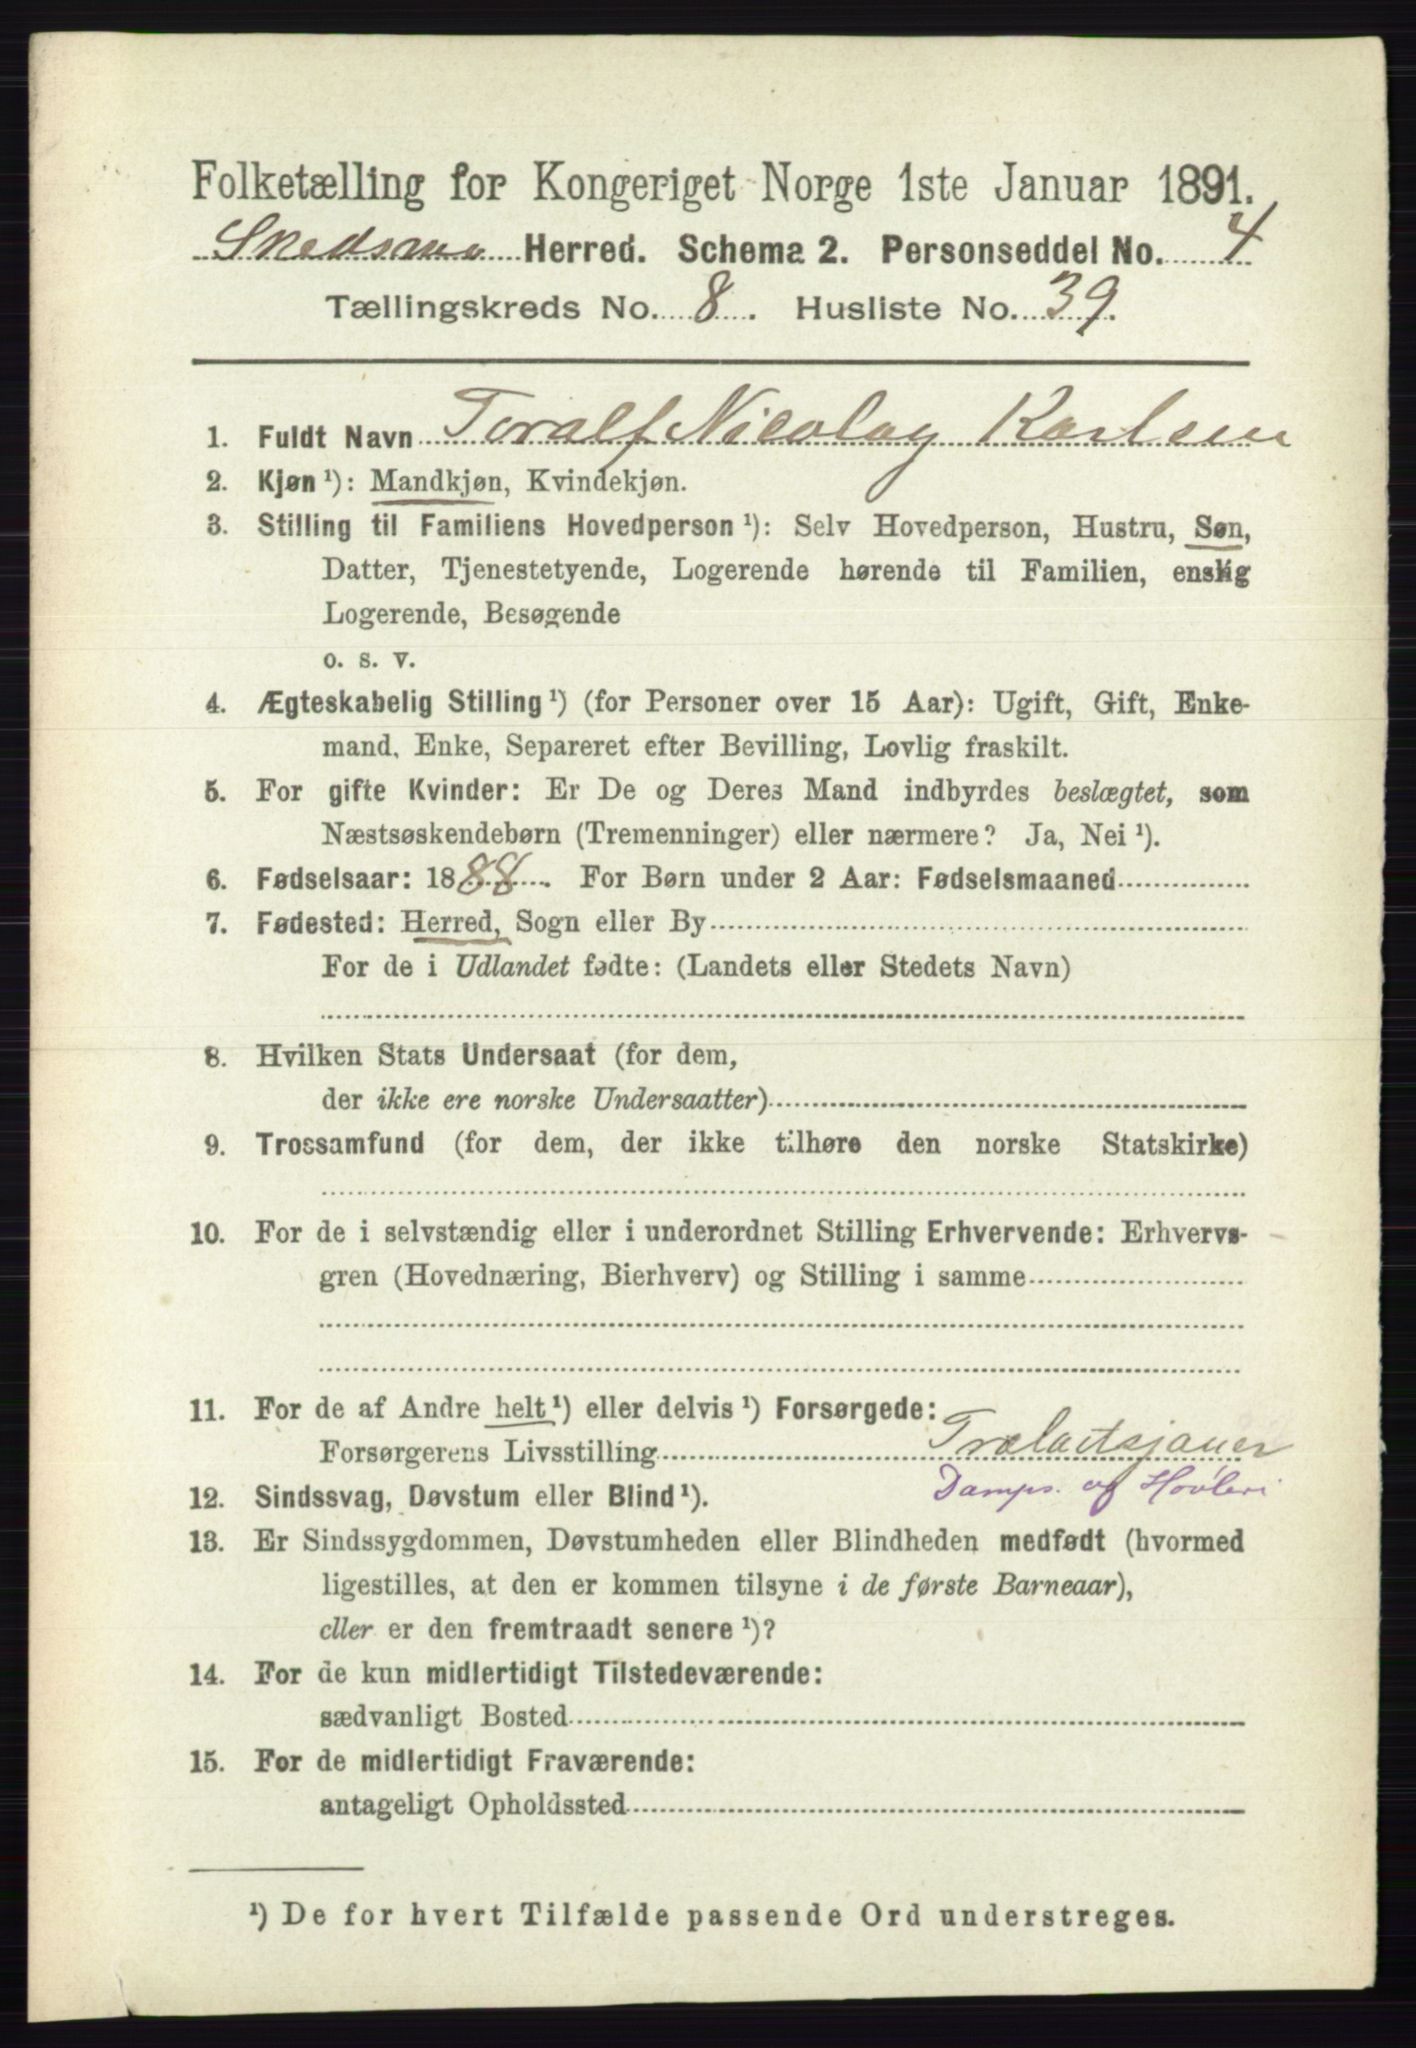 Folketælling for Kongeriget Norge 1ste Januar 1891.
Skedsmo Herred. Schema 2. Personseddel No. 4
Tællingskreds No. 8. Husliste No. 39.
1. Fuldt Navn Toralf Nicolay Karlsen
2. Kjøn ¹): Mandkjøn, Kvindekjøn.
3. Stilling til Familiens Hovedperson ¹): Selv Hovedperson, Hustru, Søn,
Datter, Tjenestetyende, Logerende hørende til Familien, enslig
Logerende, Besøgende
o. s. v.
4. Ægteskabelig Stilling ¹) (for Personer over 15 Aar): Ugift, Gift, Enke-
mand, Enke, Separeret efter Bevilling, Lovlig fraskilt.
5. For gifte Kvinder: Er De og Deres Mand indbyrdes beslægtet, som
Næstsøskendebørn (Tremenninger) eller nærmere? Ja, Nei ¹).
6. Fødselsaar: 1888. For Børn under 2 Aar: Fødselsmaaned
7. Fødested: Herred, Sogn eller By
For de i Udlandet fødte: (Landets eller Stedets Navn)
8. Hvilken Stats Undersaat (for dem,
der ikke ere norske Undersaatter)
9. Trossamfund (for dem, der ikke tilhøre den norske Statskirke)
10. For de i selvstændig eller i underordnet Stilling Erhvervende: Erhvervs-
gren (Hovednæring, Bierhverv) og Stilling i samme
11. For de af Andre helt ¹) eller delvis ¹) Forsørgede:
Forsørgerens Livsstilling Trælastsjauer
Damps. og Høvleri
12. Sindssvag, Døvstum eller Blind ¹).
13. Er Sindssygdommen, Døvstumheden eller Blindheden medfødt (hvormed
ligestilles, at den er kommen tilsyne i de første Barneaar),
eller er den fremtraadt senere ¹)?
14. For de kun midlertidigt Tilstedeværende:
sædvanligt Bosted
15. For de midlertidigt Fraværende:
antageligt Opholdssted
¹) De for hvert Tilfælde passende Ord understreges.